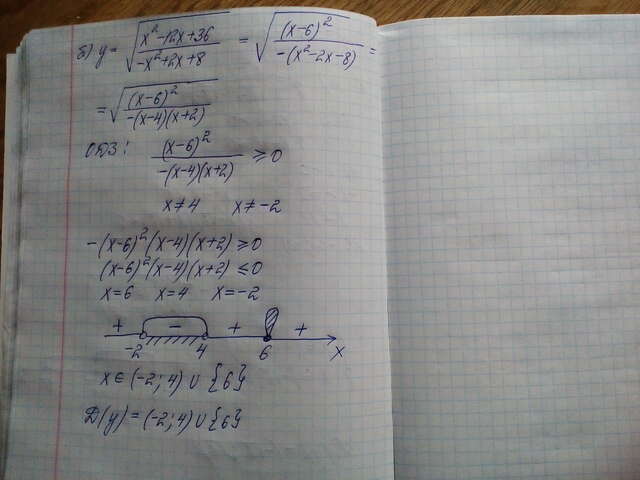 б) y = √((x²-12x+36)/(-x²+2x+8)) = √((x-6)²/(-(x²-2x-8))) =
= √((x-6)²/(-(x-4)(x+2)))
ОДЗ: (x-6)²/(-(x-4)(x+2)) ≥ 0
x≠4 x≠-2
-(x-6)²(x-4)(x+2) ≥ 0
(x-6)²(x-4)(x+2) ≤ 0
x=6 x=4 x=-2
+ - + +
-2 4 6 x
x ∈ (-2; 4) ∪ {6}
D(y) = (-2; 4) ∪ {6}